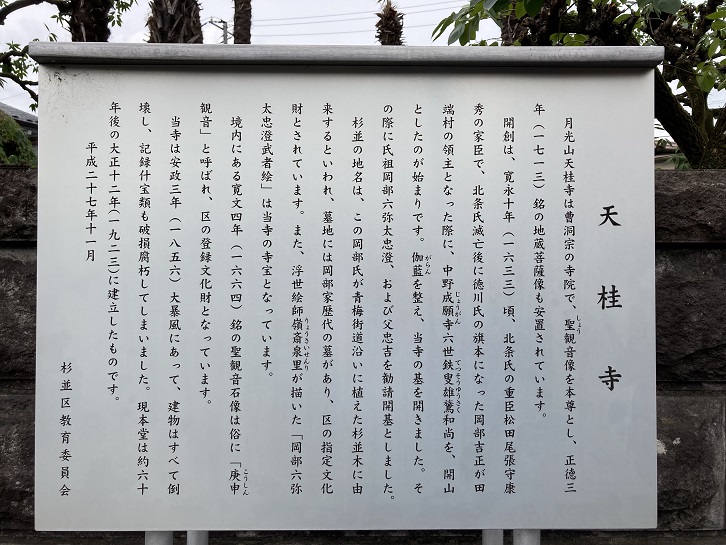 天桂寺
月光山天桂寺は曹洞宗の寺院で、聖観音像を本尊とし、正徳三
年（一七一三）銘の地蔵菩薩像も安置されています。
開創は、寛永十年（一六三三）頃、北条氏の重臣松田尾張守康
秀の家臣で、北条氏滅亡後に徳川氏の旗本になった岡部吉正が田
端村の領主となった際に、中野成願寺六世鉄叟雄鷟和尚を、開山
としたのが始まりです。伽藍を整え、当寺の基を開きました。そ
の際に氏祖岡部六弥太忠澄、および父忠吉を勧請開基としました。
杉並の地名は、この岡部氏が青梅街道沿いに植えた杉並木に由
来するといわれ、墓地には岡部家歴代の墓があり、区の指定文化
財とされています。また、浮世絵師嶺斎泉里が描いた「岡部六弥
太忠澄武者絵」は当寺の寺宝となっています。
境内にある寛文四年（一六六四）銘の聖観音石像は俗に「庚申
観音」と呼ばれ、区の登録文化財となっています。
当寺は安政三年（一八五六）大暴風にあって、建物はすべて倒
壊し、記録什宝類も破損腐朽してしまいました。現本堂は約六十
年後の大正十二年（一九二三）に建立したものです。
平成二十七年十一月
杉並区教育委員会